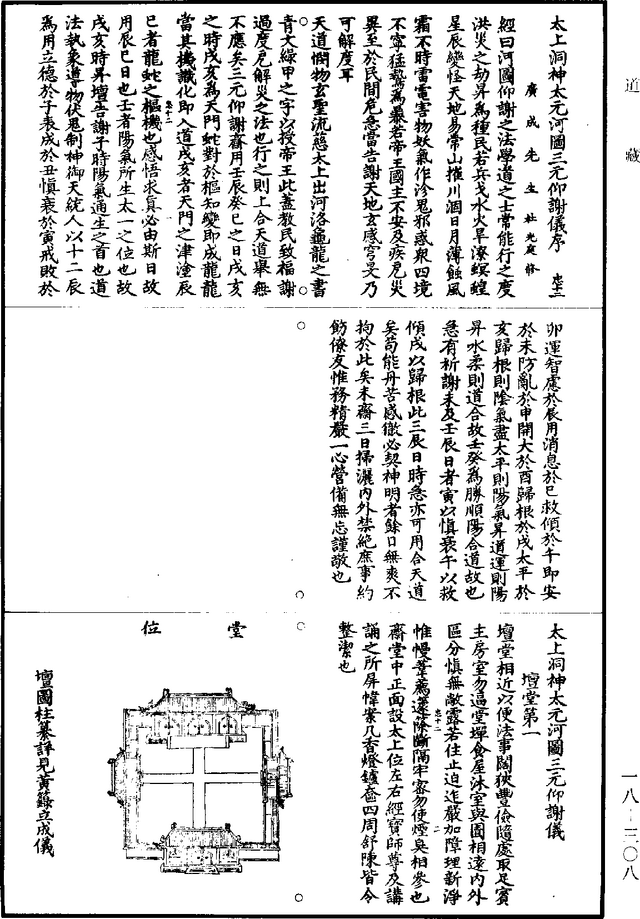 道藏
太上洞神太元河圖三元仰謝儀序 忠十二
廣成先生杜光庭修
經曰河圖仰謝之法學道之士常能行之度
洪災之劫昇為種民若兵戈水火旱潦螟蝗
星辰變怪天地易常山摧川涸日月薄蝕風
霜不時雷電害物妖氣作沴鬼邪惑衆四境
不寧猛鷙為𡚁若帝王國主不安及疾厄災
異至於民間危急當告謝天地玄感穹旻乃
可解度耳
天道憫物玄聖流慈太上出河洛龜龍之書
青文綠甲之字以授帝王此蓋教民致福謝
過度厄解災之法也行之則上合天道舉無
不應矣三元仰謝齋用壬辰癸巳之日戌亥
之時戌亥為天門蛇對於樞知變即成龍龍
當其機識化即入道戌亥者天門之津塗辰
巳者龍蛇之樞機也感悟求真必由斯日故
用辰巳日也壬者陽氣所生太一之位也故
戌亥時昇壇告謝子時陽氣通生之首也道
法執象造物伏鬼制神御天統人以十二辰
為用立德於子表成於丑慎衰於寅戒敗於
卯運智慮於辰用消息於巳救傾於午即安
於未防亂於申開大於酉歸根於戌太平於
亥歸根則陰氣盡太平則陽氣昇道運則陽
昇水柔則道合故壬癸為勝順陽合道故也
急有祈謝未及壬辰日者寅以慎衰午以救
傾戌以歸根此三辰日時急亦可用合天道
矣苟能丹苦感徹必契神明者餘日無爽不
拘於此矣未齋三日掃灑內外禁絕庶事約
飭僚友惟務精嚴一心營備無忘謹敬也
太上洞神太元河圖三元仰謝儀
壇堂第一
壇堂相近以便法事闊狹豐儉隨處取足賓
主房室勿逼堂墠食屋沐室與圊相遠內外
區分慎無敞露若住止迫迮嚴加障埋新淨
帷幔葦薦蘧蒢斷隔牢密勿使煙臭相參也
齋堂中正面設太上位左右經寶師尊及講
誦之所屏幃案几香燈鑪奩四周舒陳皆令
整潔也
堂位
壇圖柱纂詳見黃籙立成儀
一八-三〇八